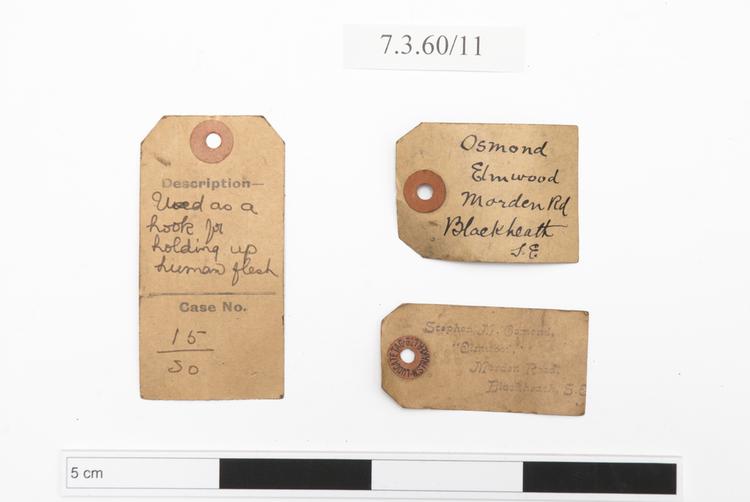 7.3.60/11
Description—
Used as a
hook for
holding up
human flesh
Case No.
15
50
Osmond
Elmwood
Morden Rd
Blackheath
S.E
Stephen M. Osmond,
"Elmwood"
Morden Road,
Blackheath, S.E
5 cm